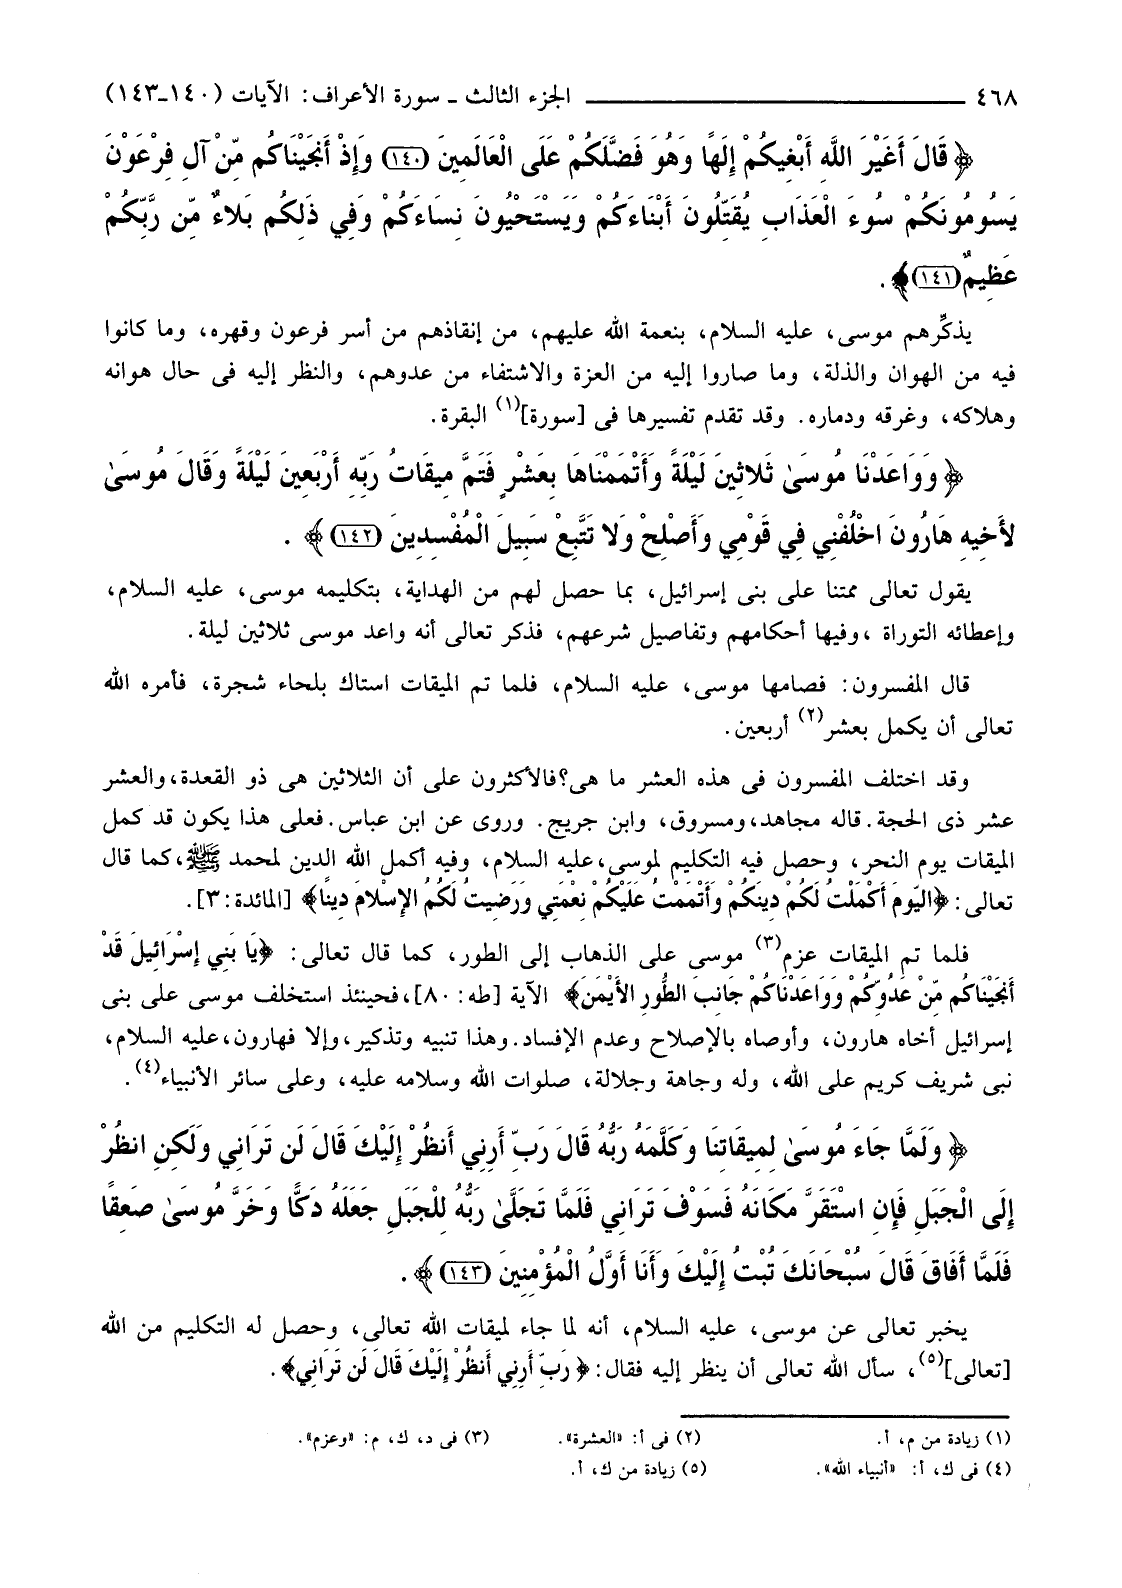 ٤٦٨ ــــــــــــ الجزء الثالث ـ سورة الأعراف: الآيات (١٤٠ـ١٤٣)
﴿ قَالَ أَغَيْرَ اللَّهِ أَبْغِيكُمْ إِلَهًا وَهُوَ فَضَّلَكُمْ عَلَى الْعَالَمِينَ (١٤٠) وَإِذْ أَنجَيْنَاكُم مِّنْ آلِ فِرْعَوْنَ
يَسُومُونَكُمْ سُوءَ الْعَذَابِ يُقَتِّلُونَ أَبْنَاءَكُمْ وَيَسْتَحْيُونَ نِسَاءَكُمْ وَفِي ذَلِكُم بَلاءٌ مِّن رَّبِّكُمْ
عَظِيمٌ (١٤١) ﴾ .
يذكِّرهم موسى، عليه السلام، بنعمة الله عليهم، من إنقاذهم من أسر فرعون وقهره، وما كانوا
فيه من الهوان والذلة، وما صاروا إليه من العزة والاشتفاء من عدوهم، والنظر إليه فى حال هوانه
وهلاكه، وغرقه ودماره. وقد تقدم تفسيرها فى [سورة](١) البقرة.
﴿ وَوَاعَدْنَا مُوسَىٰ ثَلاثِينَ لَيْلَةً وَأَتْمَمْنَاهَا بِعَشْرٍ فَتَمَّ مِيقَاتُ رَبِّهِ أَرْبَعِينَ لَيْلَةً وَقَالَ مُوسَىٰ
لأَخِيهِ هَارُونَ اخْلُفْنِي فِي قَوْمِي وَأَصْلِحْ وَلا تَتَّبِعْ سَبِيلَ الْمُفْسِدِينَ (١٤٢) ﴾ .
يقول تعالى ممتنا على بنى إسرائيل، بما حصل لهم من الهداية، بتكليمه موسى، عليه السلام،
وإعطائه التوراة ،وفيها أحكامهم وتفاصيل شرعهم، فذكر تعالى أنه واعد موسى ثلاثين ليلة.
قال المفسرون: فصامها موسى، عليه السلام، فلما تم الميقات استاك بلحاء شجرة، فأمره الله
تعالى أن يكمل بعشر(٢) أربعين.
وقد اختلف المفسرون فى هذه العشر ما هى؟فالأكثرون على أن الثلاثين هى ذو القعدة،والعشر
عشر ذى الحجة.قاله مجاهد،ومسروق، وابن جريج. وروى عن ابن عباس.فعلى هذا يكون قد كمل
الميقات يوم النحر، وحصل فيه التكليم لموسى،عليه السلام، وفيه أكمل الله الدين لمحمد ﷺ،كما قال
تعالى: ﴿الْيَوْمَ أَكْمَلْتُ لَكُمْ دِينَكُمْ وَأَتْمَمْتُ عَلَيْكُمْ نِعْمَتِي وَرَضِيتُ لَكُمُ الإِسْلامَ دِينًا﴾ [المائدة:٣].
فلما تم الميقات عزم(٣) موسى على الذهاب إلى الطور، كما قال تعالى: ﴿يَا بَنِي إِسْرَائِيلَ قَدْ
أَنجَيْنَاكُم مِّنْ عَدُوِّكُمْ وَوَاعَدْنَاكُمْ جَانِبَ الطُّورِ الأَيْمَنَ﴾ الآية [طه: ٨٠]،فحينئذ استخلف موسى على بنى
إسرائيل أخاه هارون، وأوصاه بالإصلاح وعدم الإفساد.وهذا تنبيه وتذكير،وإلا فهارون،عليه السلام،
نبى شريف كريم على الله، وله وجاهة وجلالة، صلوات الله وسلامه عليه، وعلى سائر الأنبياء(٤).
﴿ وَلَمَّا جَاءَ مُوسَىٰ لِمِيقَاتِنَا وَكَلَّمَهُ رَبُّهُ قَالَ رَبِّ أَرِنِي أَنظُرْ إِلَيْكَ قَالَ لَن تَرَانِي وَلَكِنِ انظُرْ
إِلَى الْجَبَلِ فَإِنِ اسْتَقَرَّ مَكَانَهُ فَسَوْفَ تَرَانِي فَلَمَّا تَجَلَّىٰ رَبُّهُ لِلْجَبَلِ جَعَلَهُ دَكًّا وَخَرَّ مُوسَىٰ صَعِقًا
فَلَمَّا أَفَاقَ قَالَ سُبْحَانَكَ تُبْتُ إِلَيْكَ وَأَنَا أَوَّلُ الْمُؤْمِنِينَ (١٤٣) ﴾ .
يخبر تعالى عن موسى، عليه السلام، أنه لما جاء لميقات الله تعالى، وحصل له التكليم من الله
[تعالى](٥)، سأل الله تعالى أن ينظر إليه فقال: ﴿ رَبِّ أَرِنِي أَنظُرْ إِلَيْكَ قَالَ لَن تَرَانِي﴾.
(١) زيادة من م، أ. (٢) فى أ: «العشرة». (٣) فى د، ك، م: «وعزم».
(٤) فى ك، أ: «أنبياء الله». (٥) زيادة من ك، أ.